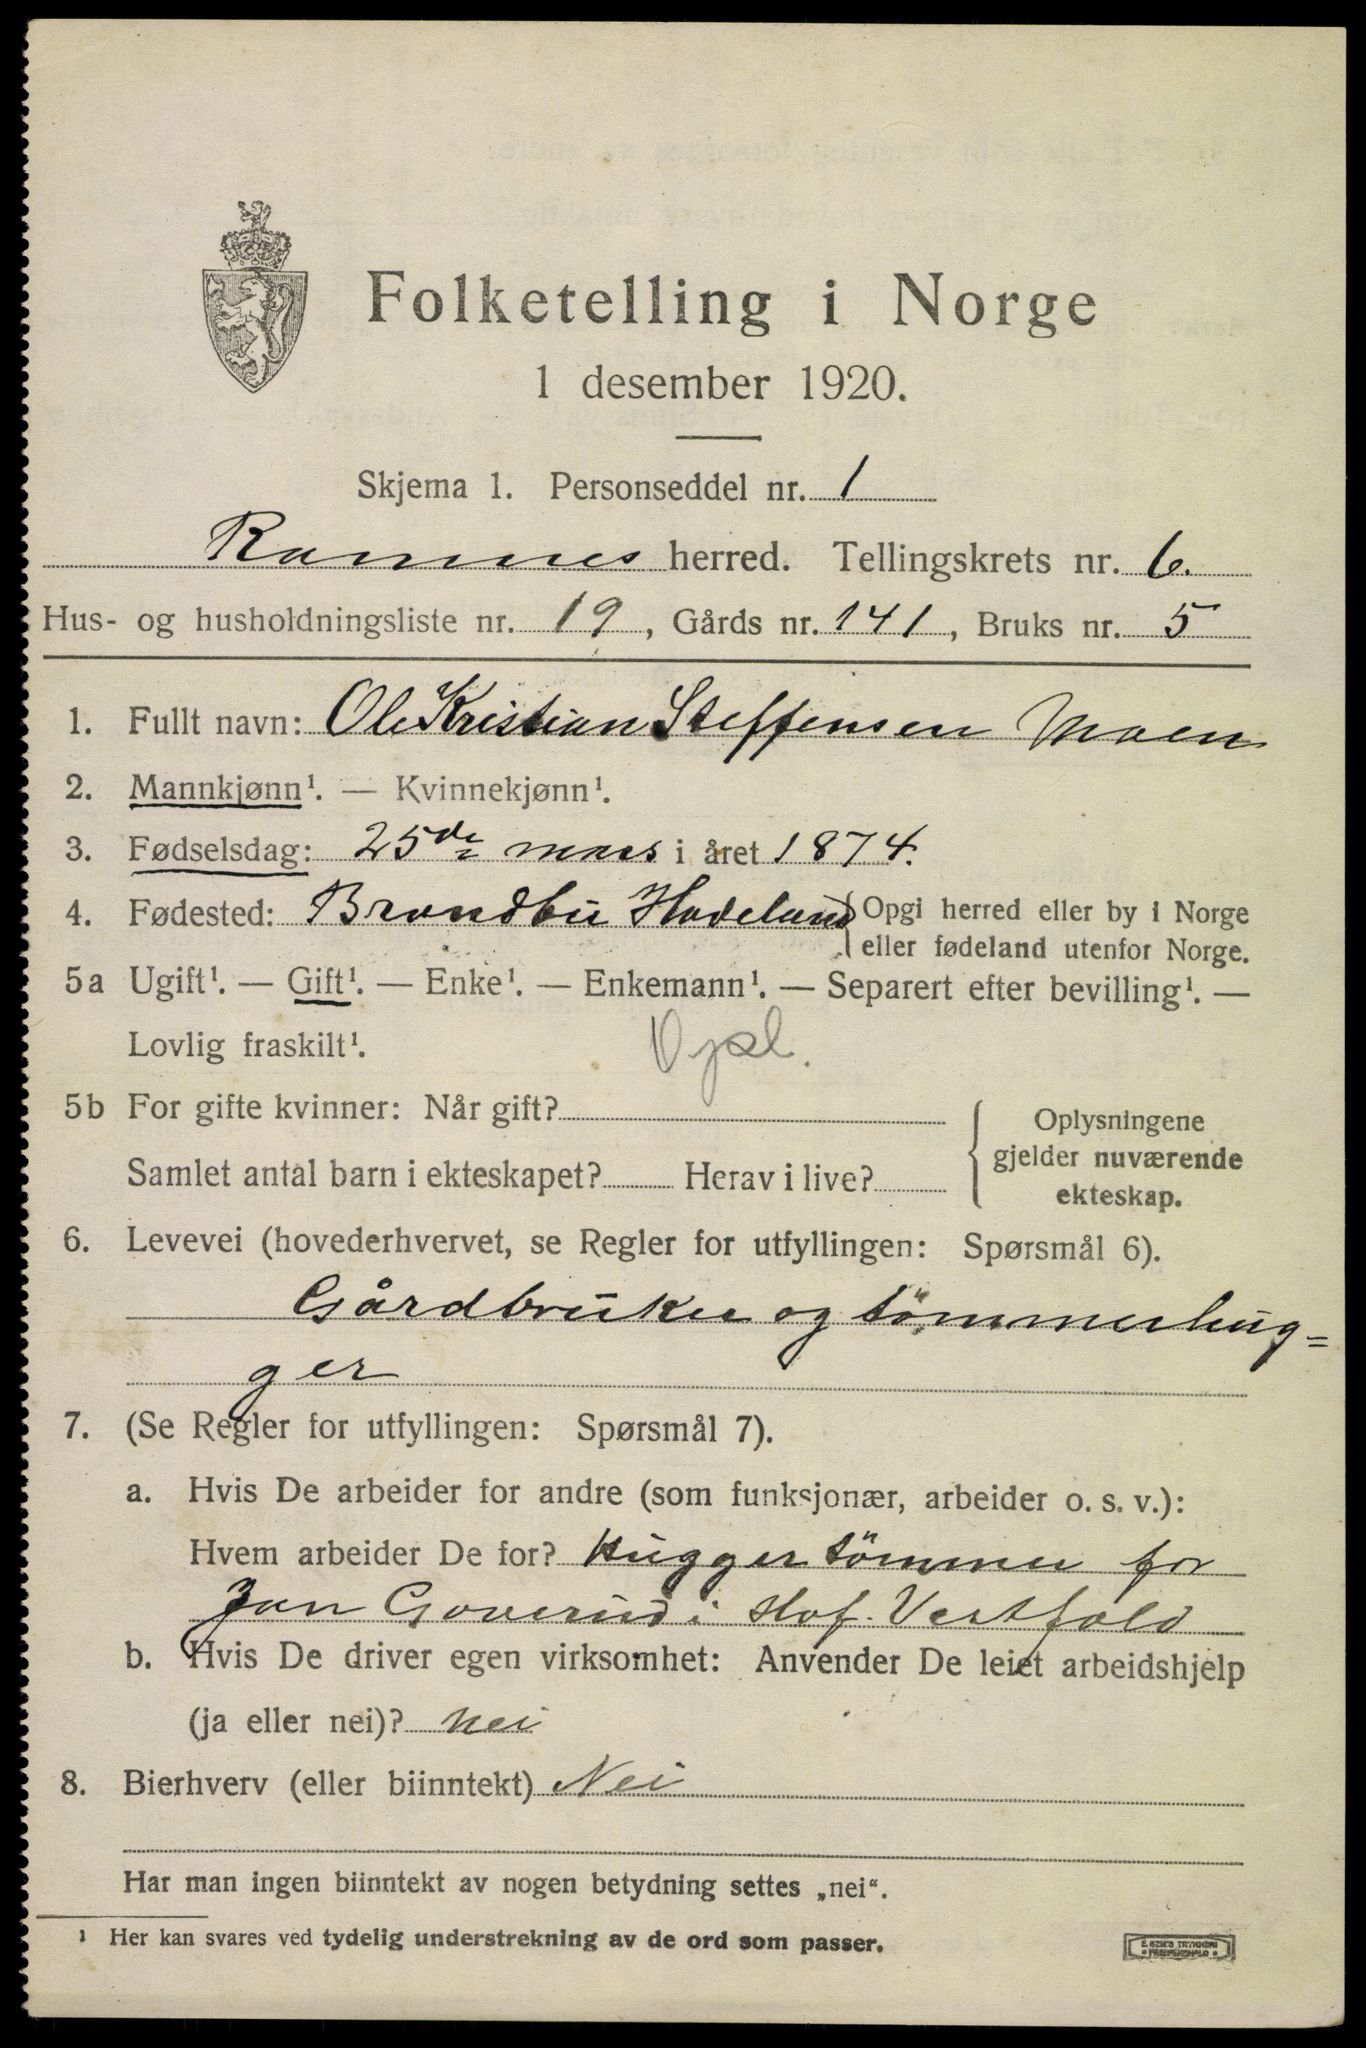 Folketelling i Norge
1 desember 1920.
Skjema 1. Personseddel nr. 1
Ramnes herred. Tellingskrets nr. 6.
Hus- og husholdningsliste nr. 19, Gårds nr. 141, Bruks nr. 5
1. Fullt navn: Ole Kristian Steffensen Moen
2. Mannkjønn¹. — Kvinnekjønn¹.
3. Fødselsdag: 25de mars i året 1874.
4. Fødested: Brandbu Hadeland { Opgi herred eller by i Norge
eller fødeland utenfor Norge.
5a Ugift¹. — Gift¹. — Enke¹. — Enkemann¹. — Separert efter bevilling¹. —
Lovlig fraskilt¹.
5b For gifte kvinner: Når gift?
Samlet antal barn i ekteskapet? Herav i live?
Oplysningene
gjelder nuværende
ekteskap.
6. Levevei (hovederhvervet, se Regler for utfyllingen: Spørsmål 6).
Gårdbruker og tömmerhug=
ger
7. (Se Regler for utfyllingen: Spørsmål 7).
a. Hvis De arbeider for andre (som funksjonær, arbeider o. s. v.):
Hvem arbeider De for? Hugger tömmer for
Jan Goverud i Hof. Vestfold
b. Hvis De driver egen virksomhet: Anvender De leiet arbeidshjelp
(ja eller nei)? nei
8. Bierhverv (eller biinntekt) Nei
Har man ingen biinntekt av nogen betydning settes „nei“.
¹ Her kan svares ved tydelig understrekning av de ord som passer.